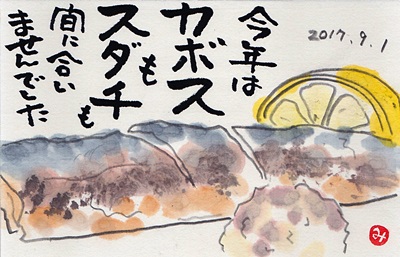 今年は
カボスも
スダチも
間に合い
ませんでした
2017.9.1
み